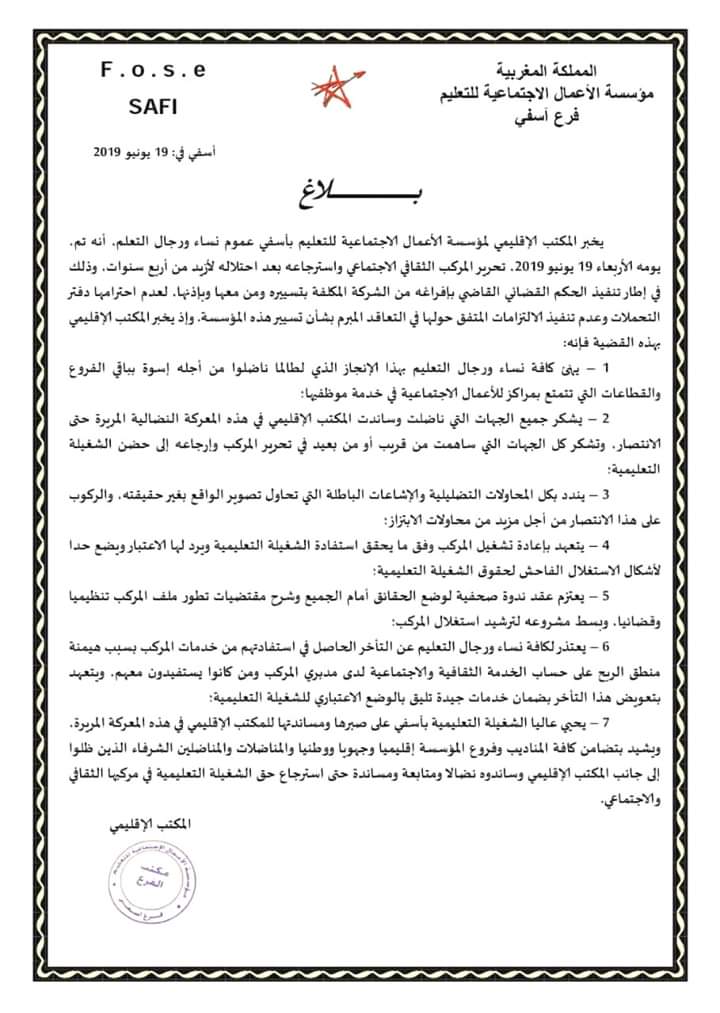 المملكة المغربية
مؤسسة الأعمال الاجتماعية للتعليم
فرع آسفي
F.o.s.e
SAFI
آسفي في: 19 يونيو 2019
بــــــــلاغ
يخبر المكتب الإقليمي لمؤسسة الأعمال الاجتماعية للتعليم بآسفي عموم نساء ورجال التعلم، أنه تم،
يومه الأربعاء 19 يونيو 2019، تحرير المركب الثقافي الاجتماعي واسترجاعه بعد احتلاله لأزيد من أربع سنوات، وذلك
في إطار تنفيذ الحكم القضائي القاضي بإفراغه من الشركة المكلفة بتسييره ومن معها وبإذنها، لعدم احترامها دفتر
التحملات وعدم تنفيذ الالتزامات المتفق حولها في التعاقد المبرم بشأن تسيير هذه المؤسسة، وإذ يخبر المكتب الإقليمي
بهذه القضية فإنه:
1 – يهنئ كافة نساء ورجال التعليم بهذا الإنجاز الذي لطالما ناضلوا من أجله إسوة بباقي الفروع
والقطاعات التي تتمتع بمراكز للأعمال الاجتماعية في خدمة موظفيها؛
2 – يشكر جميع الجهات التي ناضلت وساندت المكتب الإقليمي في هذه المعركة النضالية المريرة حتى
الانتصار، وتشكر كل الجهات التي ساهمت من قريب أو من بعيد في تحرير المركب وإرجاعه إلى حضن الشغيلة
التعليمية؛
3 – يندد بكل المحاولات التضليلية والإشاعات الباطلة التي تحاول تصوير الواقع بغير حقيقته، والركوب
على هذا الانتصار من أجل مزيد من محاولات الابتزاز؛
4 – يتعهد بإعادة تشغيل المركب وفق ما يحقق استفادة الشغيلة التعليمية ويرد لها الاعتبار ويضع حدا
لأشكال الاستغلال الفاحش لحقوق الشغيلة التعليمية؛
5 – يعتزم عقد ندوة صحفية لوضع الحقائق أمام الجميع وشرح مقتضيات تطور ملف المركب تنظيميا
وقضائيا، وبسط مشروعه لترشيد استغلال المركب؛
6 – يعتذر لكافة نساء ورجال التعليم عن التأخر الحاصل في استفادتهم من خدمات المركب بسبب هيمنة
منطق الربح على حساب الخدمة الثقافية والاجتماعية لدى مديري المركب ومن كانوا يستفيدون معهم، ويتعهد
بتعويض هذا التأخر بضمان خدمات جيدة تليق بالوضع الاعتباري للشغيلة التعليمية؛
7 – يحيي عاليا الشغيلة التعليمية بآسفي على صبرها ومساندتها للمكتب الإقليمي في هذه المعركة المريرة،
ويشيد بتضامن كافة المناديب وفروع المؤسسة إقليميا وجهويا ووطنيا والمناضلات والمناضلين الشرفاء الذين ظلوا
إلى جانب المكتب الإقليمي وساندوه نضالا ومتابعة ومساندة حتى استرجاع حق الشغيلة التعليمية في مركبها الثقافي
والاجتماعي.
المكتب الإقليمي
مؤسسة الأعمال الاجتماعية للتعليم
مكتب
الفرع
فرع آسفي